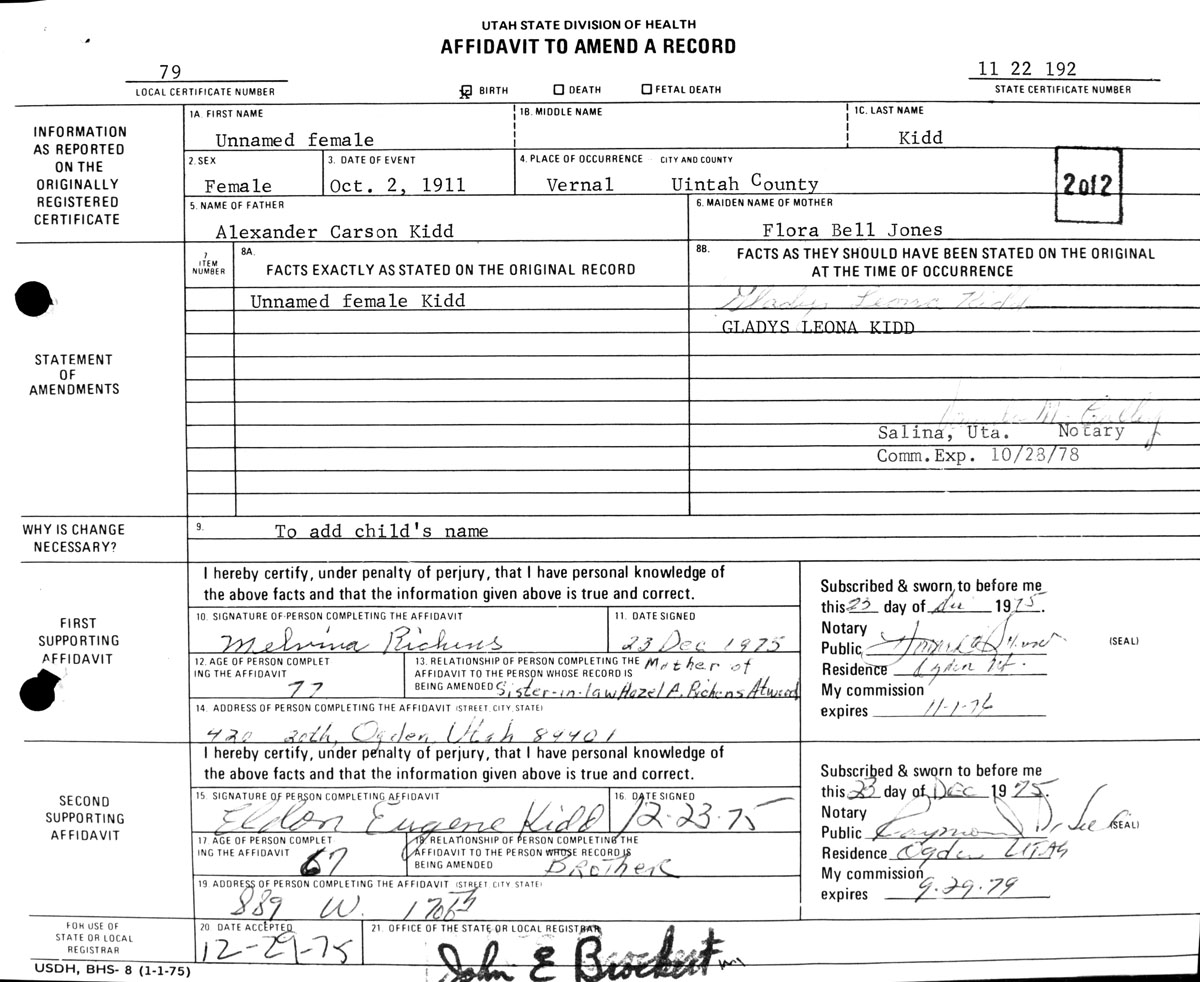 UTAH STATE DIVISION OF HEALTH
AFFIDAVIT TO AMEND A RECORD
79
11 22 192
LOCAL CERTIFICATE NUMBER
BIRTH DEATH FETAL DEATH
STATE CERTIFICATE NUMBER
INFORMATION
AS REPORTED
ON THE
ORIGINALLY
REGISTERED
CERTIFICATE
1A. FIRST NAME
Unnamed female
1B. MIDDLE NAME
1C. LAST NAME
Kidd
2. SEX
Female
3. DATE OF EVENT
Oct. 2, 1911
4. PLACE OF OCCURRENCE - CITY AND COUNTY
Vernal Uintah County
2 of 2
5. NAME OF FATHER
Alexander Carson Kidd
6. MAIDEN NAME OF MOTHER
Flora Bell Jones
STATEMENT
OF
AMENDMENTS
7
ITEM
NUMBER
8A.
FACTS EXACTLY AS STATED ON THE ORIGINAL RECORD
8B.
FACTS AS THEY SHOULD HAVE BEEN STATED ON THE ORIGINAL
AT THE TIME OF OCCURRENCE
Unnamed female Kidd
Gladys Leona Kidd
GLADYS LEONA KIDD
Salina, Uta. Notary
Comm.Exp. 10/28/78
WHY IS CHANGE
NECESSARY?
9.
To add child's name
FIRST
SUPPORTING
AFFIDAVIT
I hereby certify, under penalty of perjury, that I have personal knowledge of
the above facts and that the information given above is true and correct.
10. SIGNATURE OF PERSON COMPLETING THE AFFIDAVIT
Melvina Richins
11. DATE SIGNED
23 Dec 1975
12. AGE OF PERSON COMPLET
ING THE AFFIDAVIT
77
13. RELATIONSHIP OF PERSON COMPLETING THE Mother of
AFFIDAVIT TO THE PERSON WHOSE RECORD IS
BEING AMENDED Sister-in-law Hazel A. Richens Atwood
14. ADDRESS OF PERSON COMPLETING THE AFFIDAVIT (STREET, CITY, STATE)
420 20th, Ogden Utah 84401
Subscribed & sworn to before me
this 23 day of 1975.
Notary
Public
(SEAL)
Residence Ogden Ut.
My commission
expires 11-1-76
SECOND
SUPPORTING
AFFIDAVIT
I hereby certify, under penalty of perjury, that I have personal knowledge of
the above facts and that the information given above is true and correct.
15. SIGNATURE OF PERSON COMPLETING AFFIDAVIT
Eldon Eugene Kidd
16. DATE SIGNED
12-23-75
17. AGE OF PERSON COMPLET
ING THE AFFIDAVIT
67
18. RELATIONSHIP OF PERSON COMPLETING THE
AFFIDAVIT TO THE PERSON WHOSE RECORD IS
BEING AMENDED BROTHER
19. ADDRESS OF PERSON COMPLETING THE AFFIDAVIT (STREET, CITY, STATE)
889 W.
Subscribed & sworn to before me
this 23 day of Dec 1975.
Notary
Public Raymond D.
(SEAL)
Residence Ogden UTAH
My commission
expires 9-29-79
FOR USE OF
STATE OR LOCAL
REGISTRAR
20. DATE ACCEPTED
12-29-75
21. OFFICE OF THE STATE OR LOCAL REGISTRAR
John E Brockert
USDH, BHS- 8 (1-1-75)